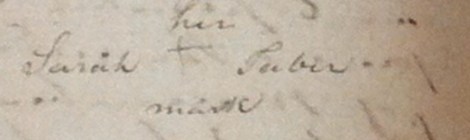 her
Sarah + Taber
mark